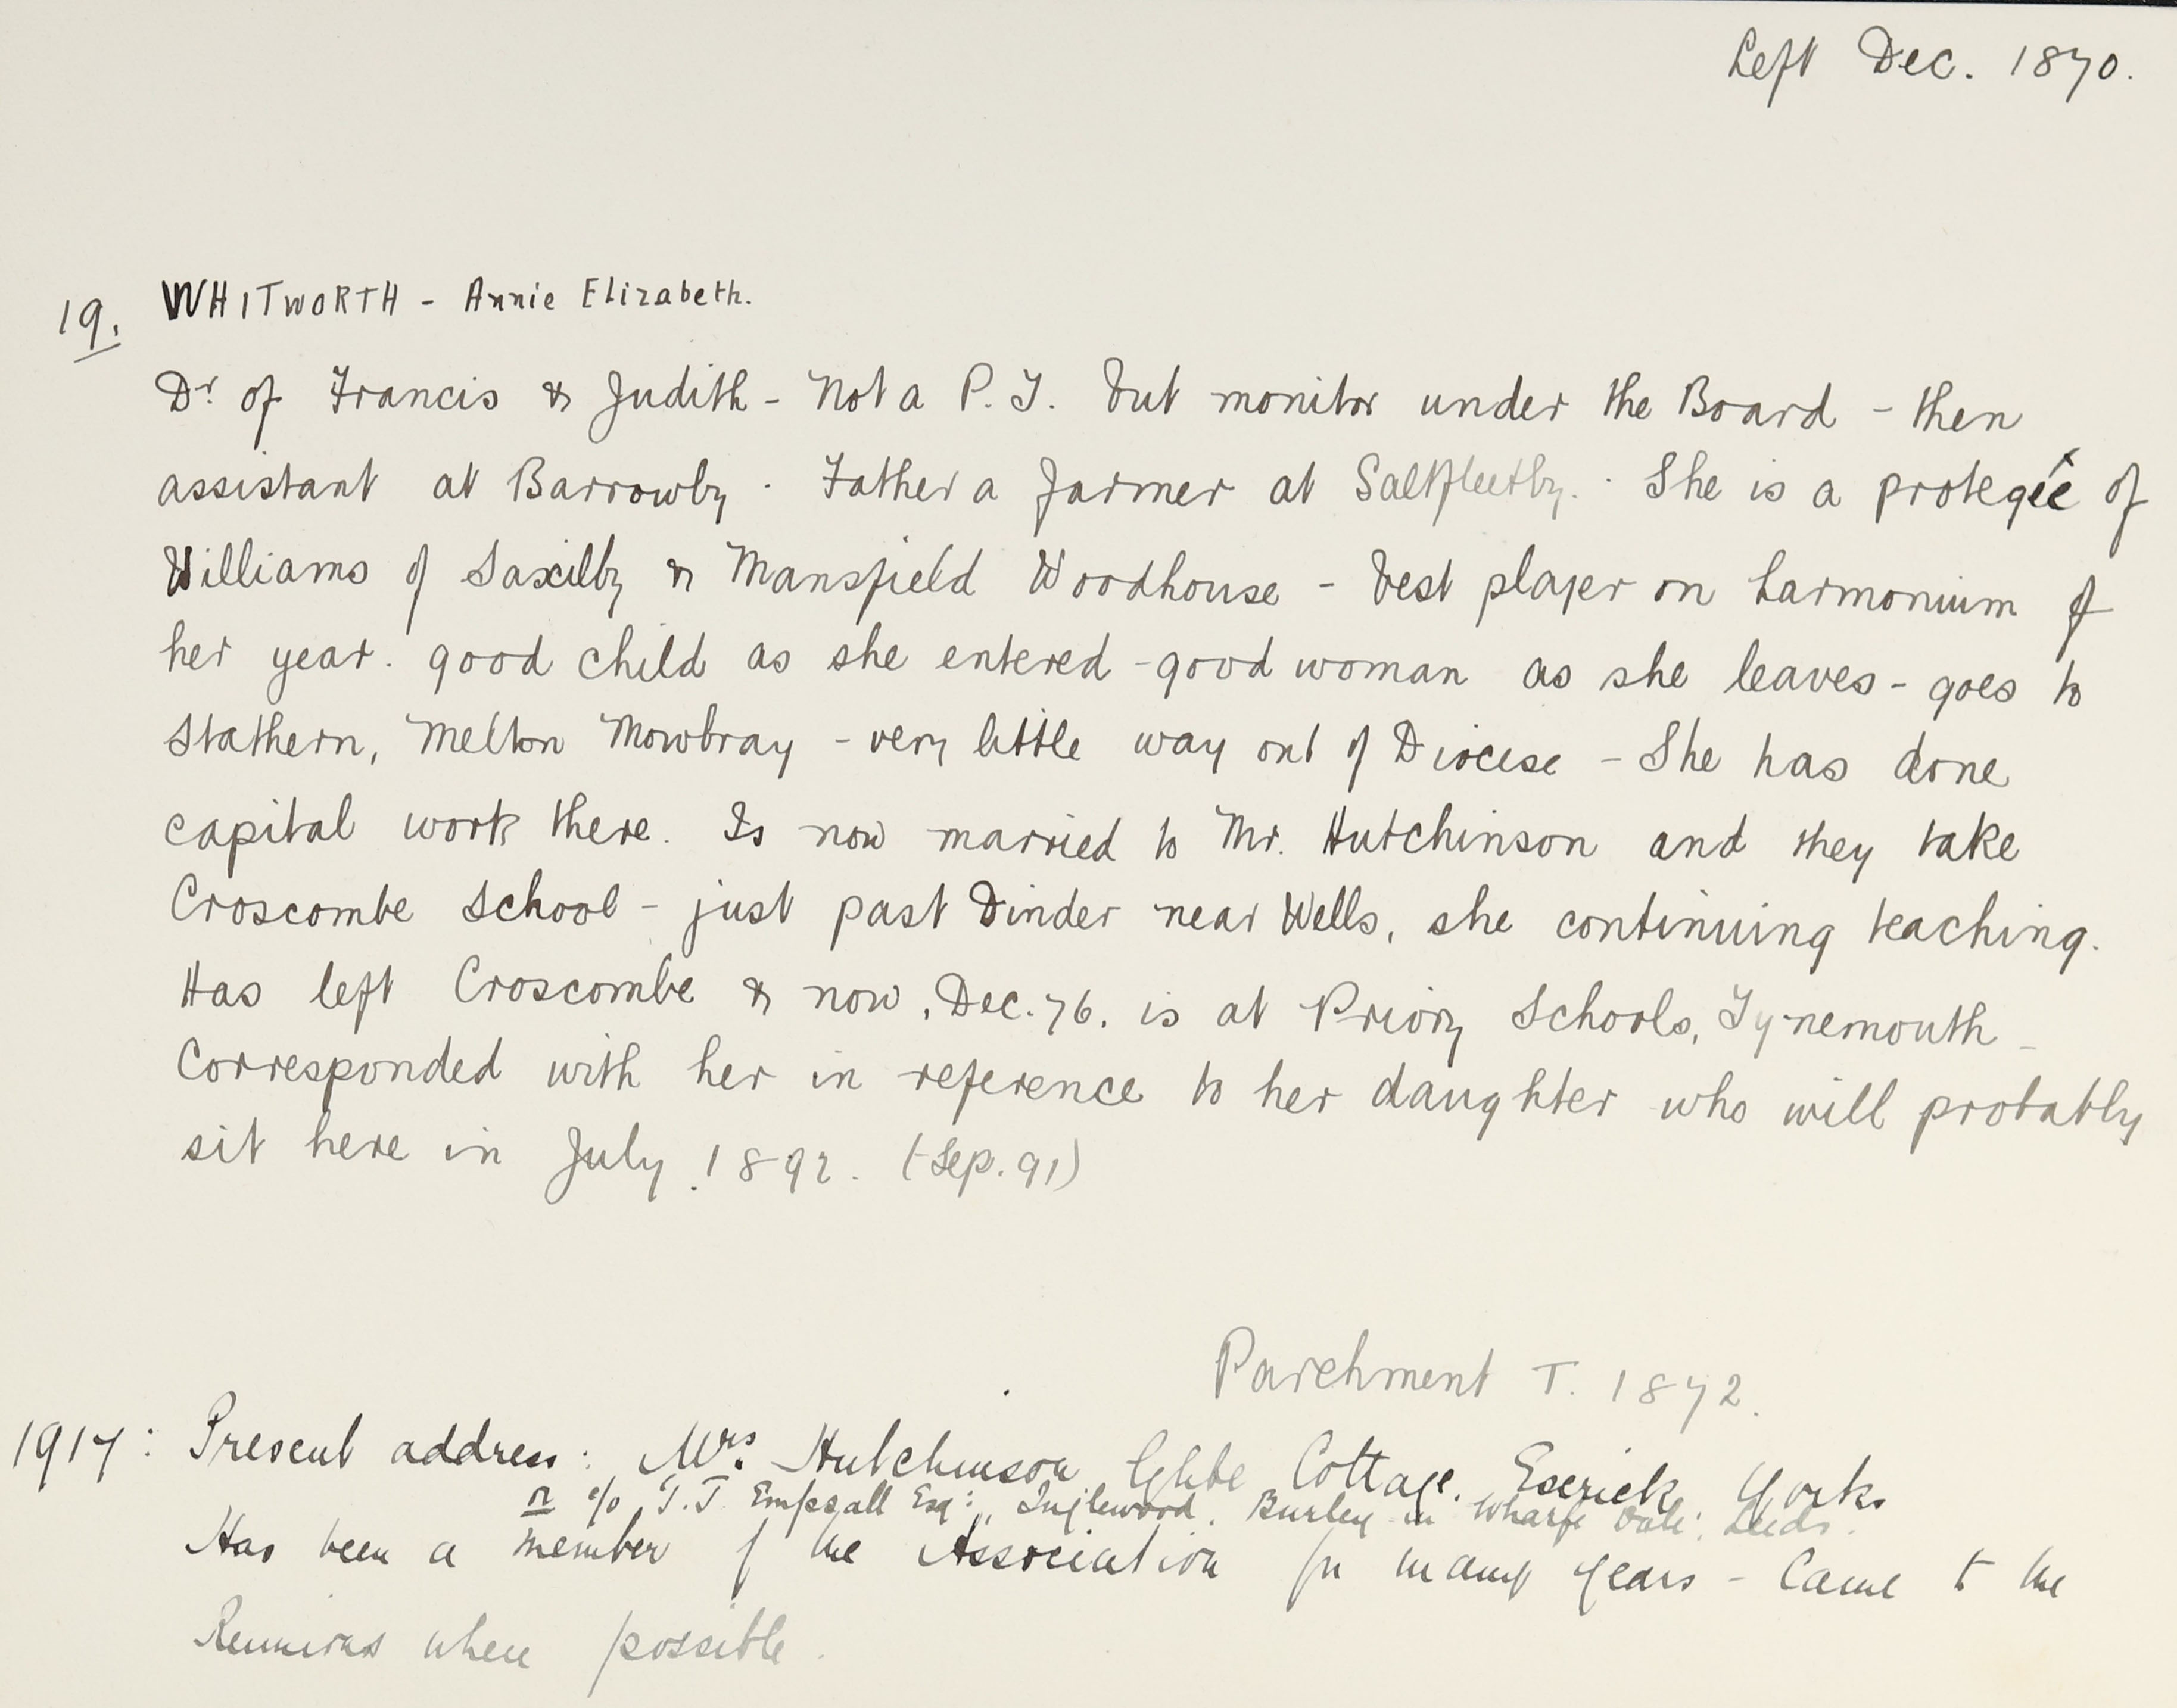 Left Dec. 1870.
19. WHITWORTH - Annie Elizabeth.
Dr. of Francis & Judith - Not a P.T. but monitor under the Board - then
assistant at Barrowby. Father a farmer at Saltfleetby. She is a protegée of
Williams of Saxilby & Mansfield Woodhouse - best player on harmonium of
her year. good child as she entered - good woman as she leaves - goes to
Stathern, Melton Mowbray - very little way out of Diocese - She has done
capital work there. Is now married to Mr. Hutchinson and they take
Croscombe School - just past Dinder near Wells, she continuing teaching.
Has left Croscombe & now, Dec. 76. is at Priory Schools, Tynemouth -
Corresponded with her in reference to her daughter who will probably
sit here in July 1892. (Sep. 91)
Parchment T. 1872.
1917: Present address: Mrs. Hutchinson Glebe Cottage. Escrick. Yorks
or c/o T.T. Empsall Esq: Inglewood. Burley in Wharfe Dale. Leeds.
Has been a member of the Association for many years - Came to the
Reunions when possible.